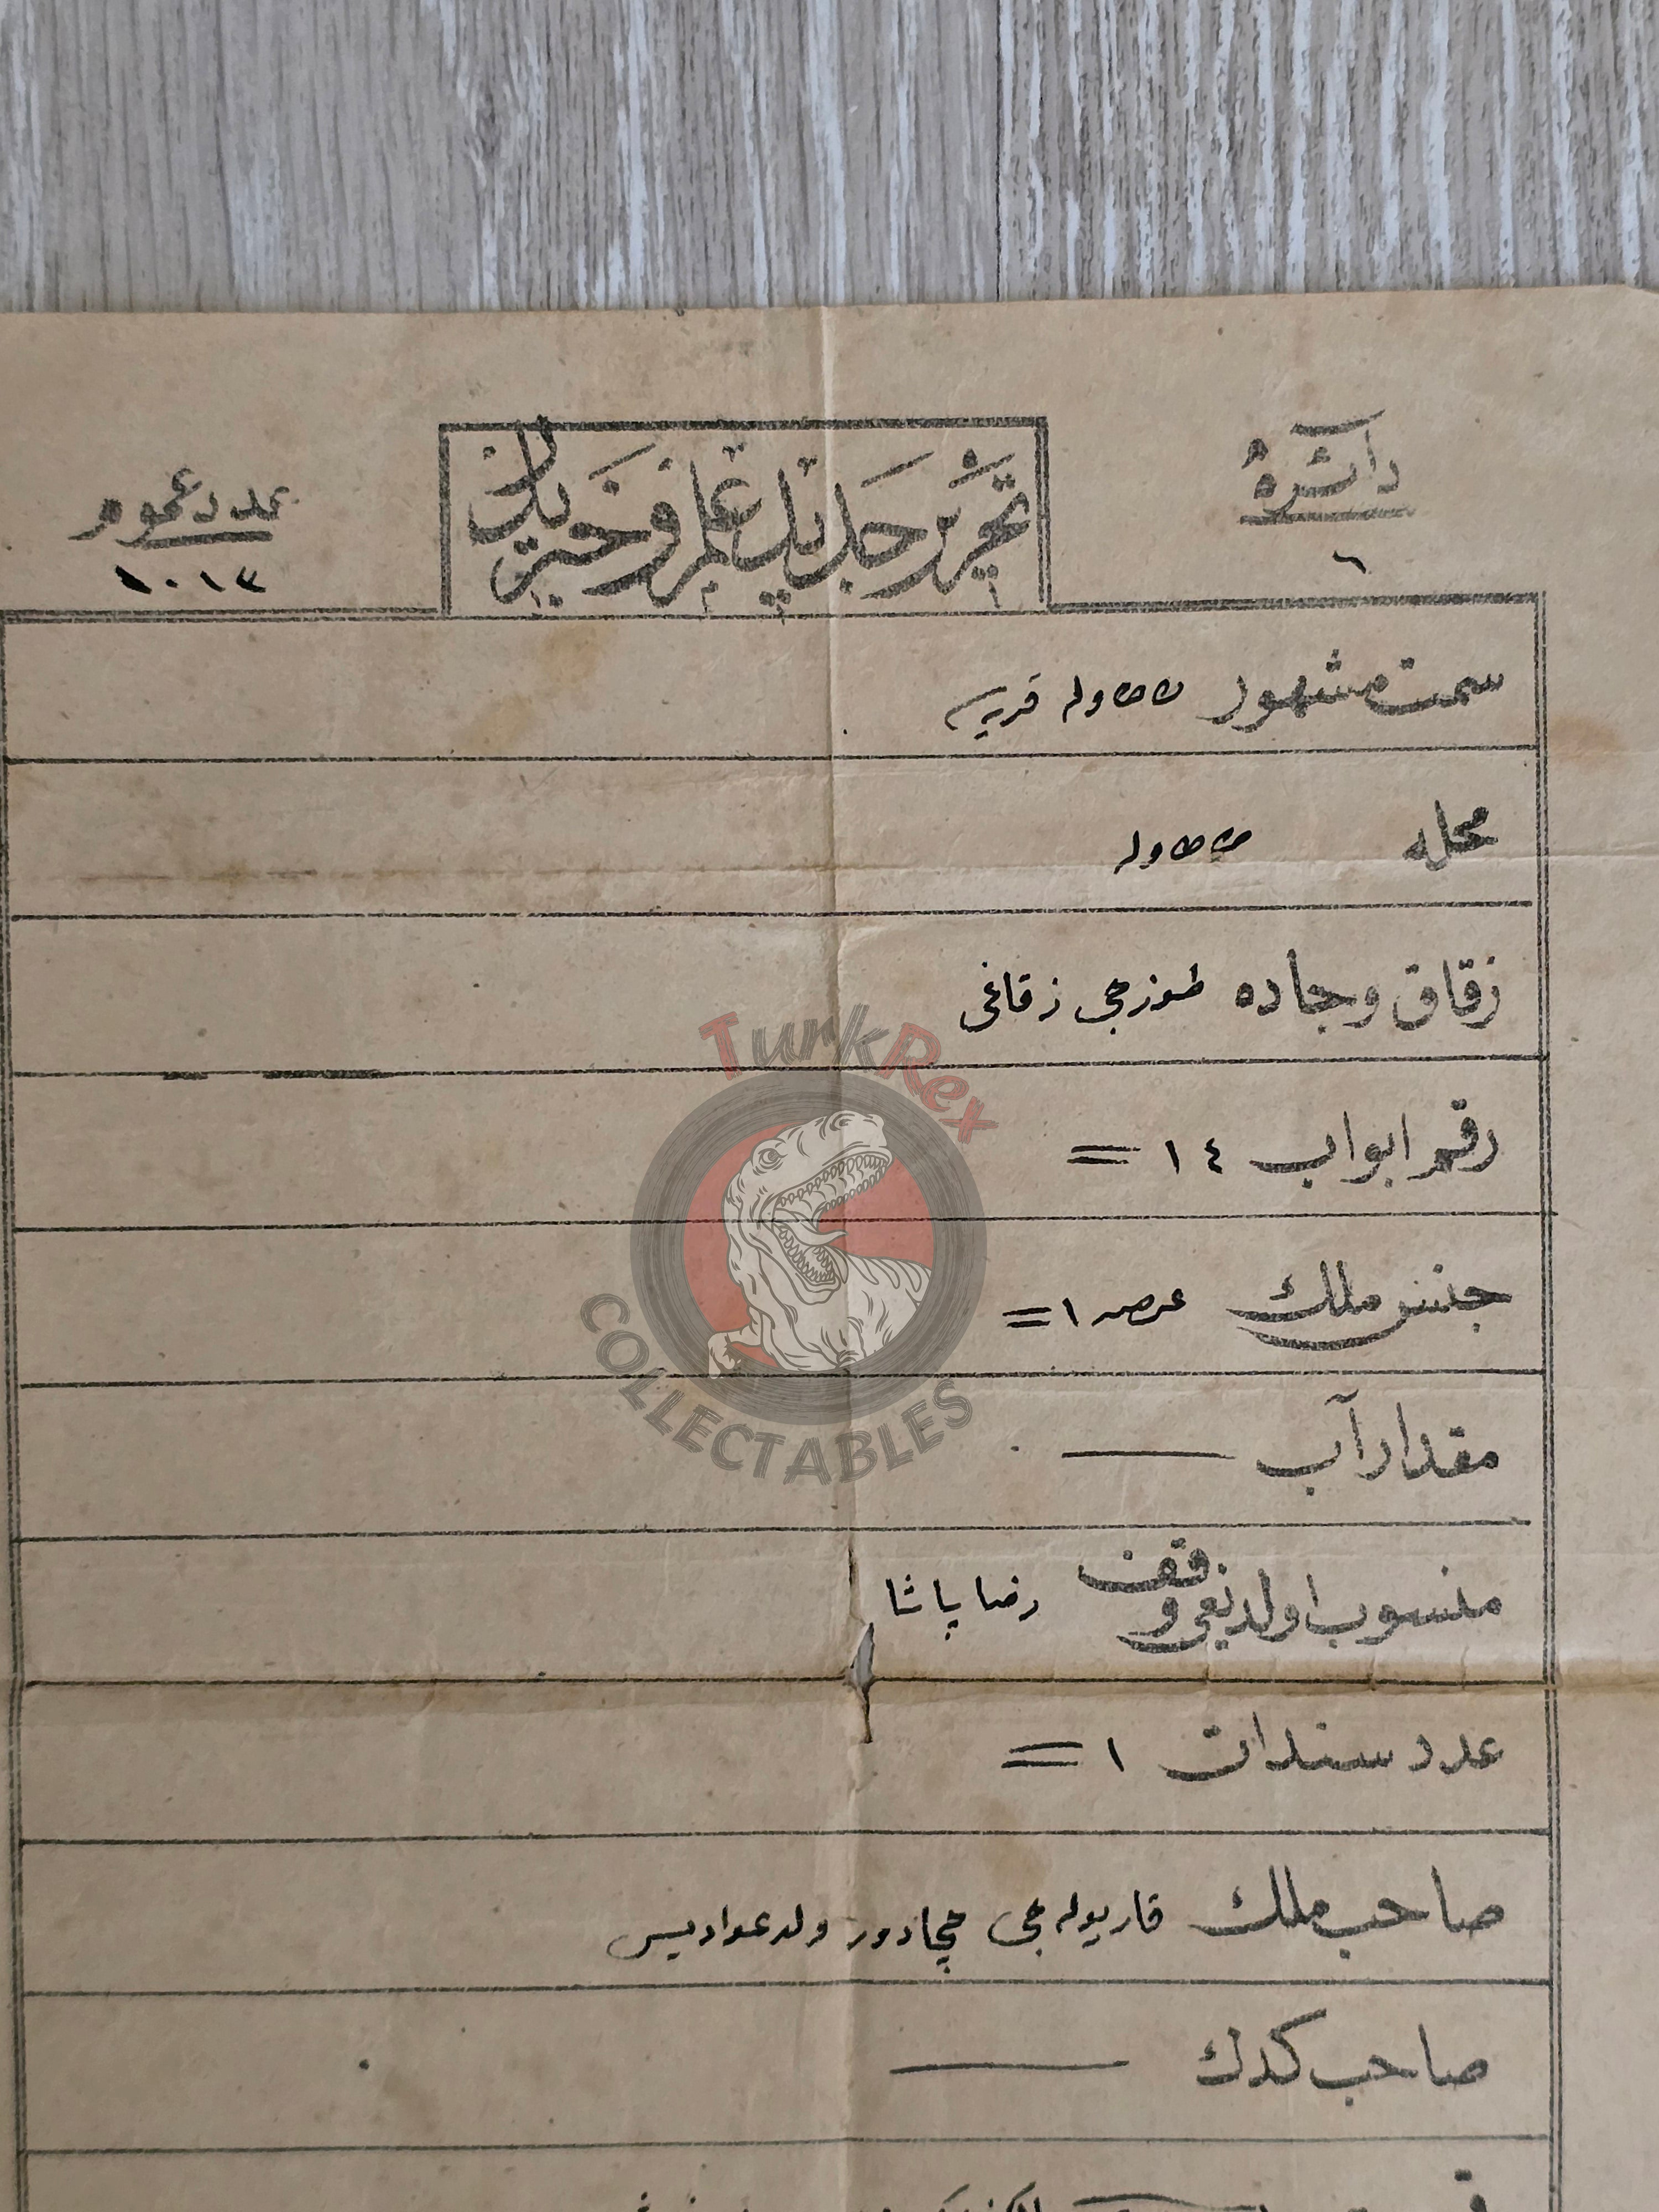 دائره‌ء
٦
تحرير جديد علم و خبريدر
عدد عموم
١٠١٣
سمت مشهور ططاوله قريه سى
محله ططاوله
زقاق وجاده طوزجى زقاغى
رقم ابواب ١٤
جنس ملك عرصه ١
مقدار آب
منسوب اولديغى وقف رضا پاشا
عدد سندات ١
صاحب ملك قاريوله جى ولد
صاحب كدك
TurkRex
COLLECTABLES